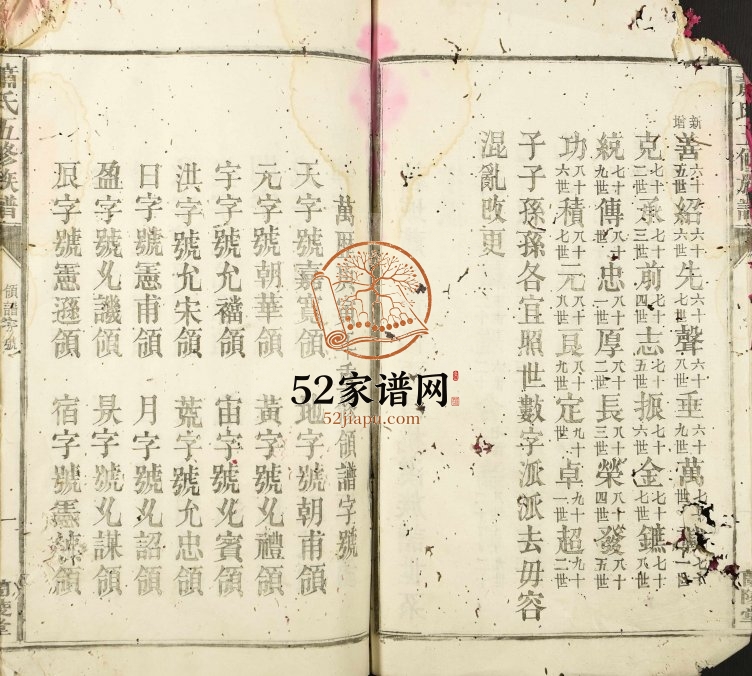 新增善六十五世紹六十六世先六十七世聲六十八世垂六十九世萬七十世
克七十二世承七十三世前七十四世志七十五世振七十六世金七十七世鑣七十八世
統七十九世傳八十世忠八十一世厚八十二世長八十三世榮八十四世發八十五世
功八十六世積八十七世元八十八世良八十九世定九十世卓九十一世超九十二世
子子孫孫各宜照世數字派派去毋容
混亂改更
萬曆 領譜字號
天字號嘉賓領 地字號朝甫領
元字號朝華領 黃字號 禮領
宇字號允襠領 宙字號 賓領
洪字號允宋領 荒字號允忠領
日字號憲甫領 月字號 詔領
盈字號 譏領 昃字號 謀領
辰字號憲遜領 宿字號憲 領
蕭氏五修族譜
領譜字號
一
蘭陵堂
52家谱网
52jiapu.com